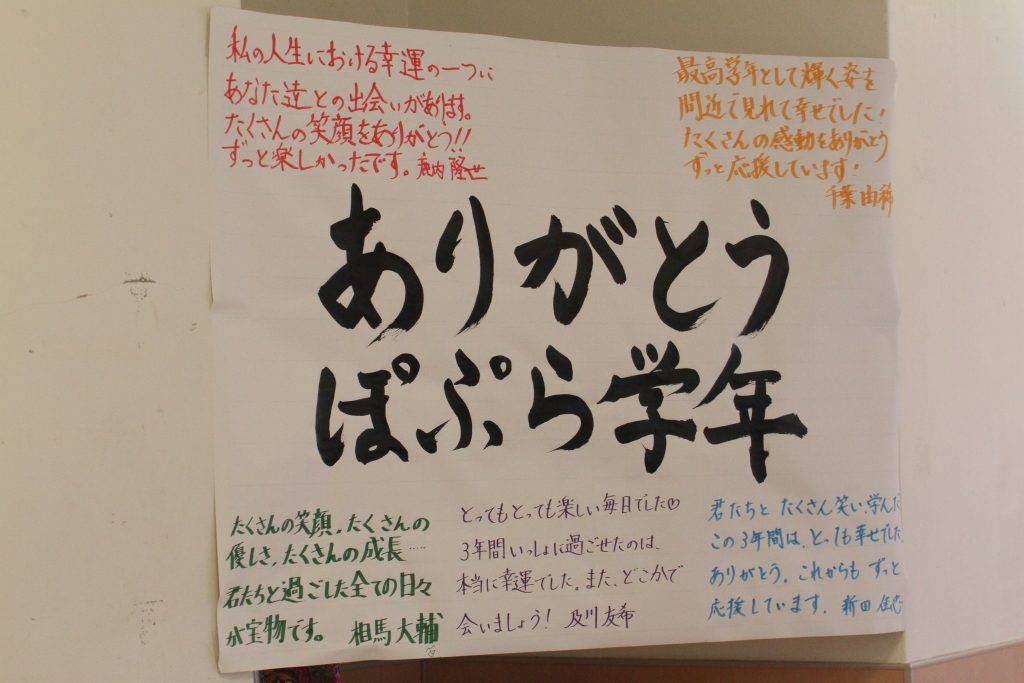 私の人生における幸運の一つに
あなた達との出会いがあります。
たくさんの笑顔をありがとう!!
ずっと楽しかったです。鹿内 隆世
最高学年として輝く姿を
間近で見れて幸せでした!
たくさんの感動をありがとう
ずっと応援しています!
千葉 由稀
ありがとう
ぽぷら学年
たくさんの笑顔、たくさんの
優しさ、たくさんの成長……
君たちと過ごした全ての日々
が宝物です。 相馬 大輔
とってもとっても楽しい毎日でした♡
3年間いっしょに過ごせたのは、
本当に幸運でした。また、どこかで
会いましょう! 及川 友希
君たちと たくさん笑い、学んだ
この3年間は、とっても幸せでした
ありがとう。これからも ずっと
応援しています。 新田